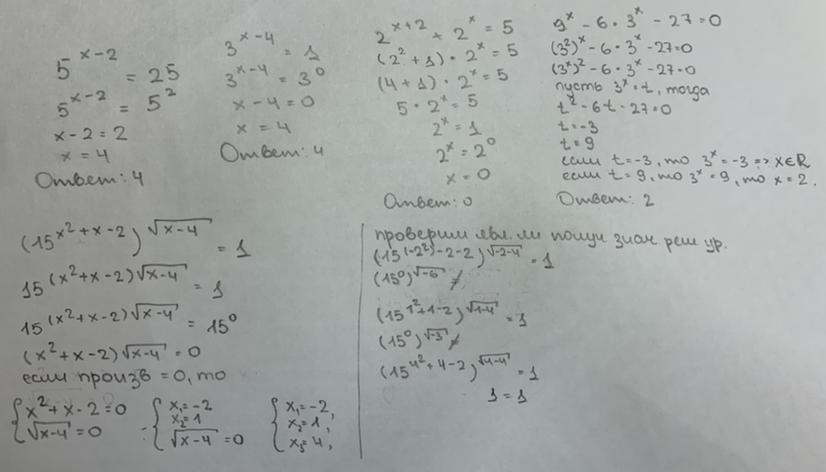 5^{x-2} = 25
5^{x-2} = 5^2
x-2=2
x=4
Ответ: 4
3^{x-4} = 1
3^{x-4} = 3^0
x-4=0
x=4
Ответ: 4
2^{x+2} + 2^x = 5
(2^2+1)·2^x = 5
(4+1)·2^x = 5
5·2^x = 5
2^x = 1
2^x = 2^0
x = 0
Ответ: 0
9^x - 6·3^x - 27 = 0
(3^2)^x - 6·3^x - 27 = 0
(3^x)^2 - 6·3^x - 27 = 0
пусть 3^x = t, тогда
t^2 - 6t - 27 = 0
t = -3
t = 9
если t = -3, то 3^x = -3 => x∈R
если t = 9, то 3^x = 9, то x = 2.
Ответ: 2
(15^{x^2+x-2})^{√(x-4)} = 1
15^{(x^2+x-2)√(x-4)} = 1
15^{(x^2+x-2)√(x-4)} = 15^0
(x^2+x-2)√(x-4) = 0
если произв = 0, то
{ x^2+x-2=0
√(x-4) = 0
{ x₁=-2
x₂=1
√(x-4) = 0
{ x₁=-2,
x₂=1,
x₃=4,
проверим явл. ли получ знач реш ур.
(15^{(-2^2)-2-2})^{√(-2-4)} = 1
(15^0)^{√-6} ≠
(15^{1^2+1-2})^{√(1-4)} = 1
(15^0)^{√-3} ≠
(15^{4^2+4-2})^{√(4-4)} = 1
1 = 1